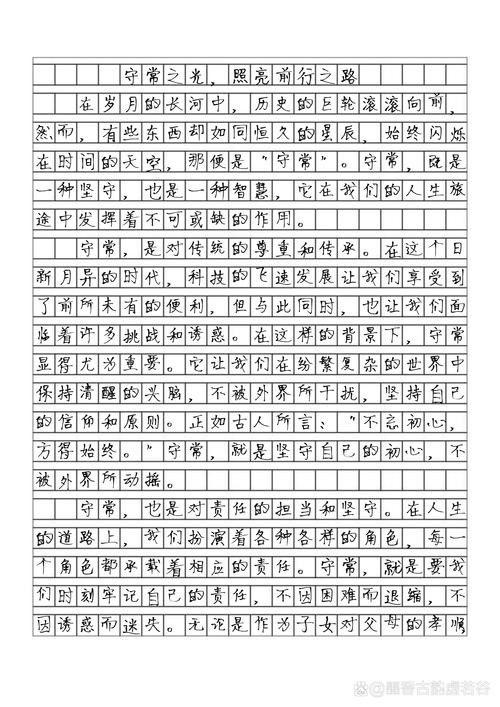 守常之光，照亮前行之路
在岁月的长河中，历史的巨轮滚滚向前，
然而，有些东西却如同恒久的星辰，始终闪烁
在时间的天空，那便是“守常”。守常，既是
一种坚守，也是一种智慧，它在我们的人生旅
途中发挥着不可或缺的作用。
守常，是对传统的尊重和传承。在这个日
新月异的时代，科技的飞速发展让我们享受到
了前所未有的便利，但与此同时，也让我们面
临着许多挑战和诱惑。在这样的背景下，守常
显得尤为重要。它让我们在纷繁复杂的世界中
保持清醒的头脑，不被外界所干扰，坚持自己
的信仰和原则。正如古人所言：“不忘初心，
方得始终。”守常，就是坚守自己的初心，不
被外界所动摇。
守常，也是对责任的担当和坚守。在人生
的道路上，我们扮演着各种各样的角色，每一
个角色都承载着相应的责任。守常，就是要我
们时刻牢记自己的责任，不因困难而退缩，不
因诱惑而迷失。无论是作为子女对父母的孝顺
@翻香古韵虚若谷